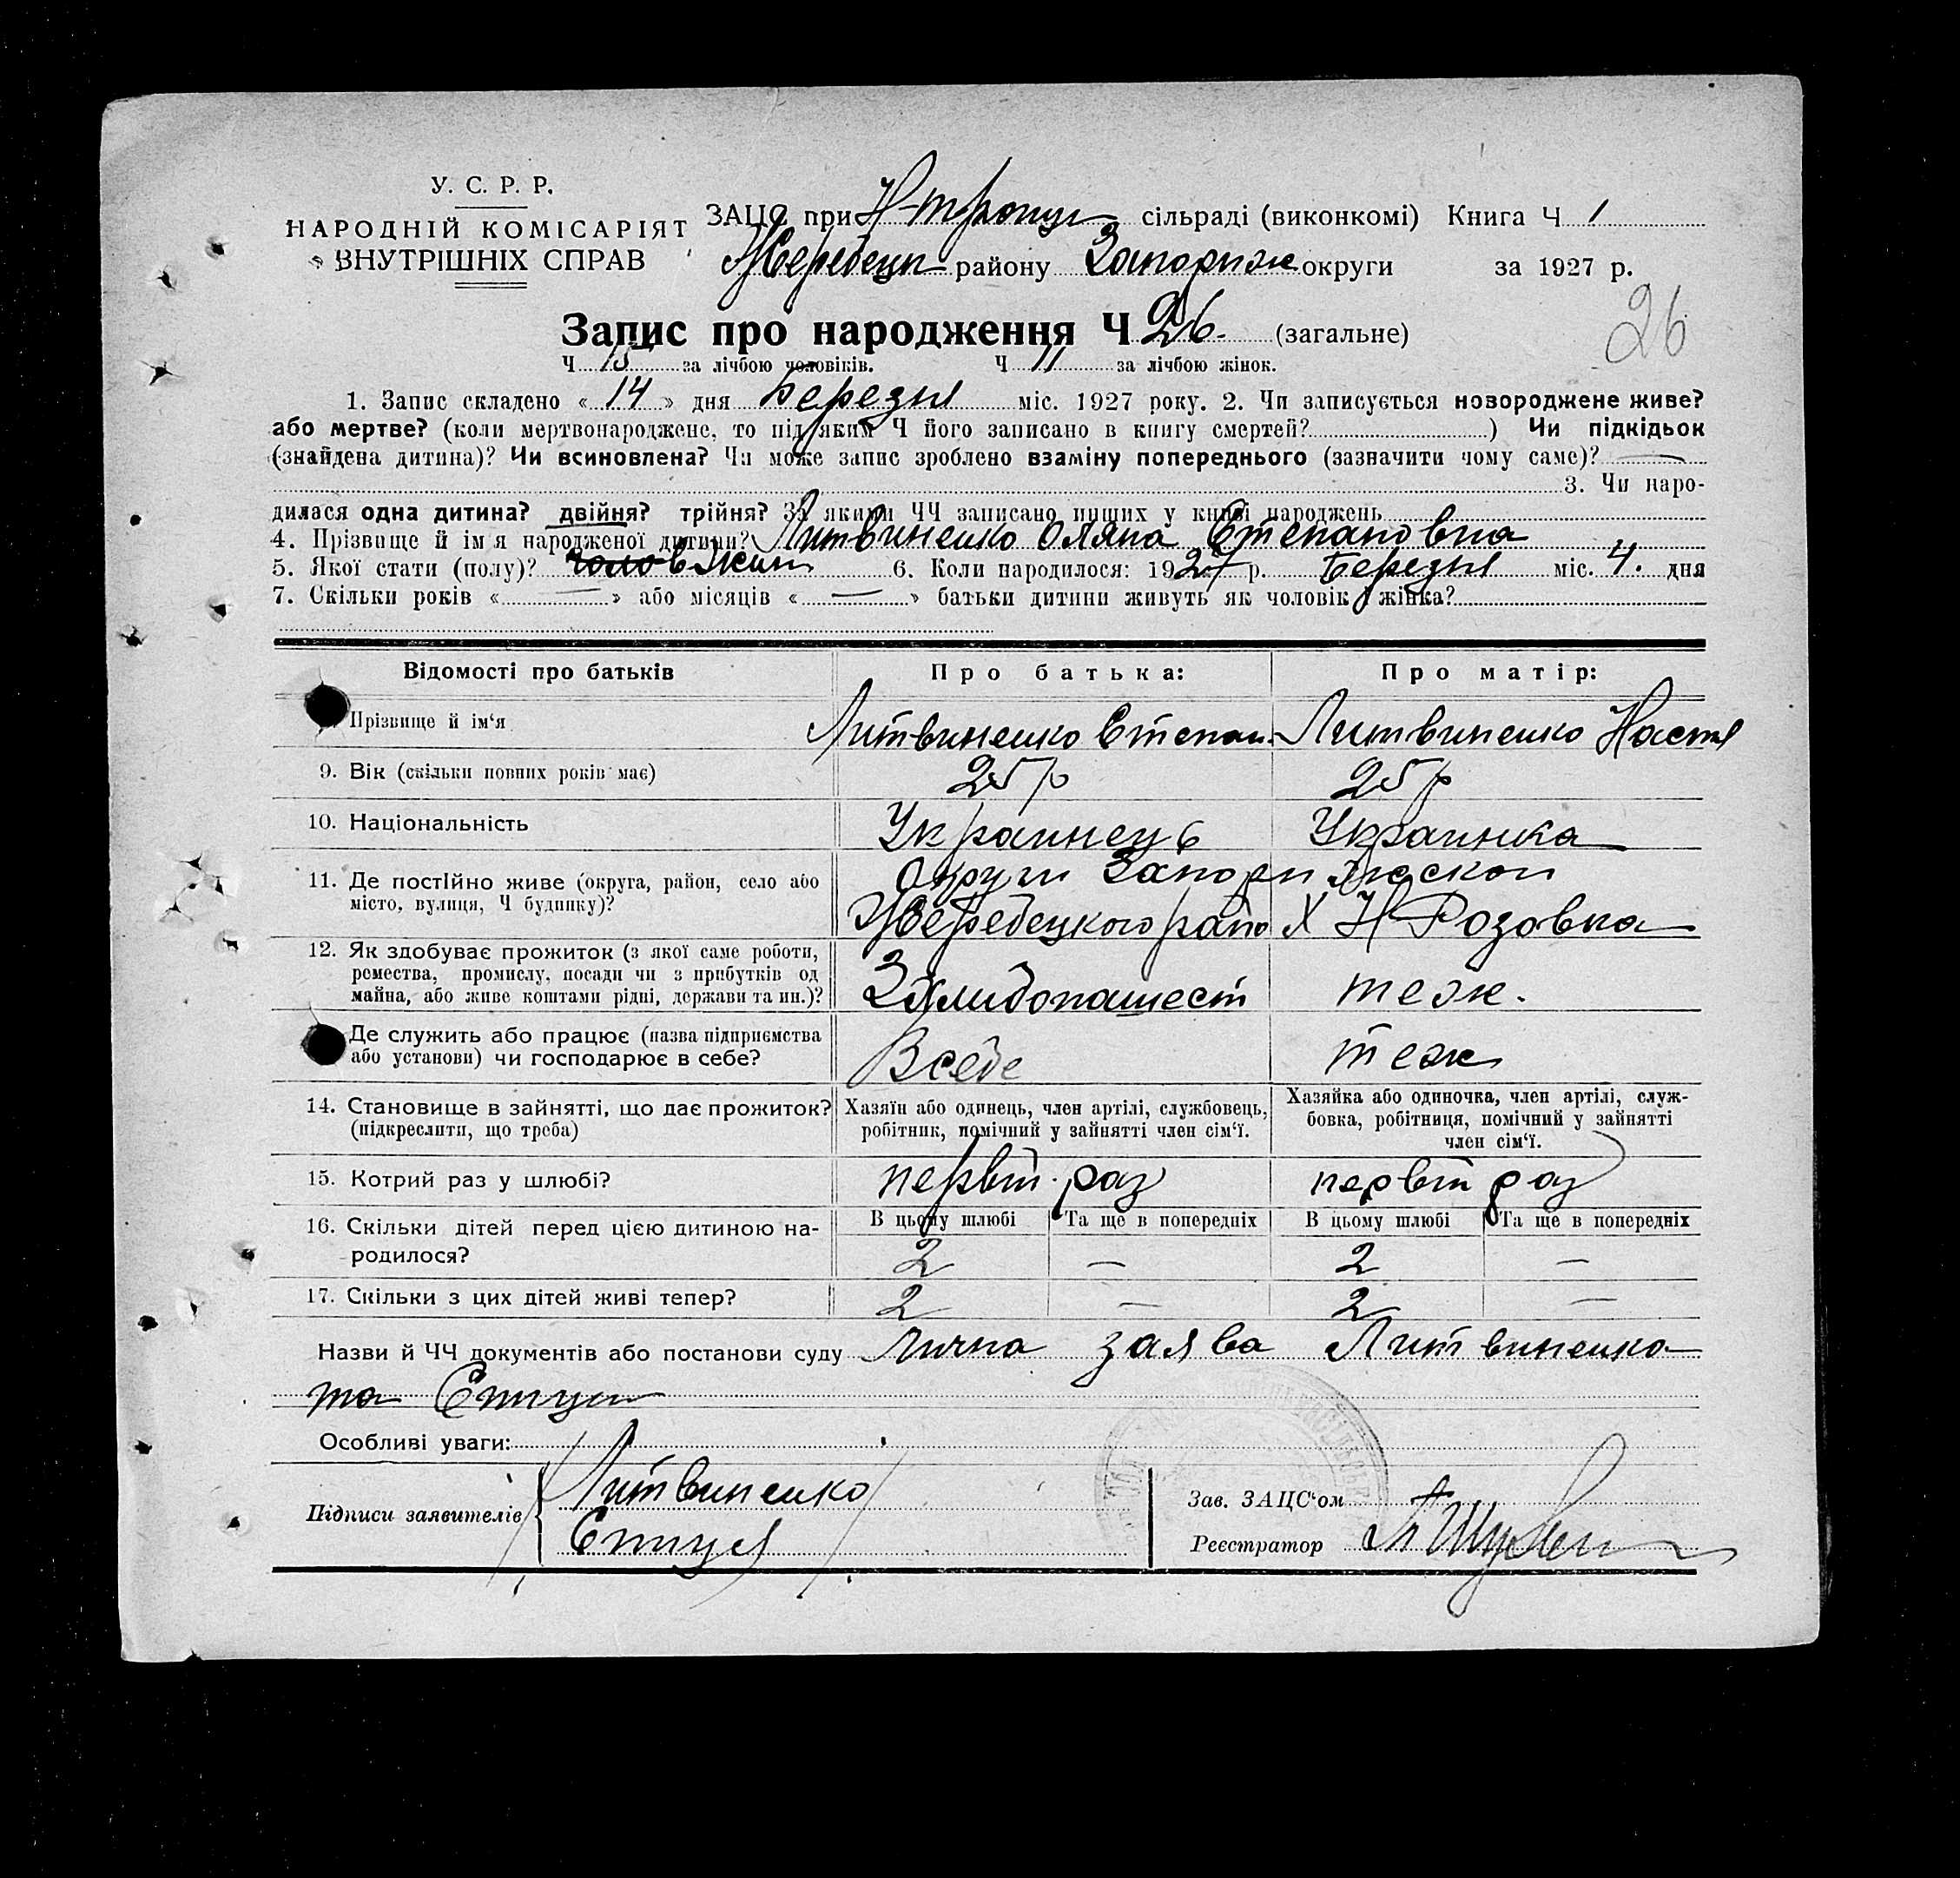 У. С. Р. Р.
НАРОДНІЙ КОМІСАРІЯТ
ВНУТРІШНІХ СПРАВ
ЗАЦС при сільраді (виконкомі) Книга Ч 1
Жеребецк району Запориж округи за 1927 р.
Запис про народження Ч 26. (загальне)
26
Ч 15 за лічбою чоловіків. Ч 11 за лічбою жінок.
1. Запис складено « 14 » дня Березня міс. 1927 року. 2. Чи записується новороджене живе?
або мертве? (коли мертвонароджене, то під яким Ч його записано в книгу смертей? ) Чи підкідьок
(знайдена дитина)? Чи всиновлена? Чи може запис зроблено взаміну попереднього (зазначити чому саме)? —
3. Чи наро-
дилася одна дитина? двійня? трійня? За якими ЧЧ записано инших у книзі народжень
4. Прізвище й імя народженої дитини? Литвиненко Оляна Степановна
5. Якої стати (полу)? чолов Жин 6. Коли народилося: 1927 р. Березня міс. 4. дня
7. Скільки років « — » або місяців « — » батьки дитини живуть як чоловік і жінка?
Відомості про батьків Про батька: Про матір:
Прізвище й ім'я Литвиненко Степан Литвиненко Настя
9. Вік (скільки повних років має) 25 р 25 р
10. Національність Украинець Украинка
11. Де постійно живе (округа, район, село або
місто, вулиця, Ч будинку)?
Округи Запорижскои
Жеребецкого райо Х Н Розовка
12. Як здобуває прожиток (з якої саме роботи,
ремества, промислу, посади чи з прибутків од
майна, або живе коштами рідні, держави та ин.)?
Зхлибопашест теж.
Де служить або працює (назва підприємства
або установи) чи господарює в себе?
Всебе теж
14. Становище в зайнятті, що дає прожиток?
(підкреслити, що треба)
Хазяїн або одинець, член артілі, службовець,
робітник, помічний у зайнятті член сім'ї.
Хазяйка або одиночка, член артілі, служ-
бовка, робітниця, помічний у зайнятті
член сім'ї.
15. Котрий раз у шлюбі? первій раз первій раз
16. Скільки дітей перед цією дитиною на-
родилося?
В цьому шлюбі Та ще в попередніх В цьому шлюбі Та ще в попередніх
2 — 2 —
17. Скільки з цих дітей живі тепер? 2 — 2 —
Назви й ЧЧ документів або постанови суду лична заява Литвиненка
та
Особливі уваги:
Підписи заявителів Литвиненко
Зав. ЗАЦС'ом
Реєстратор